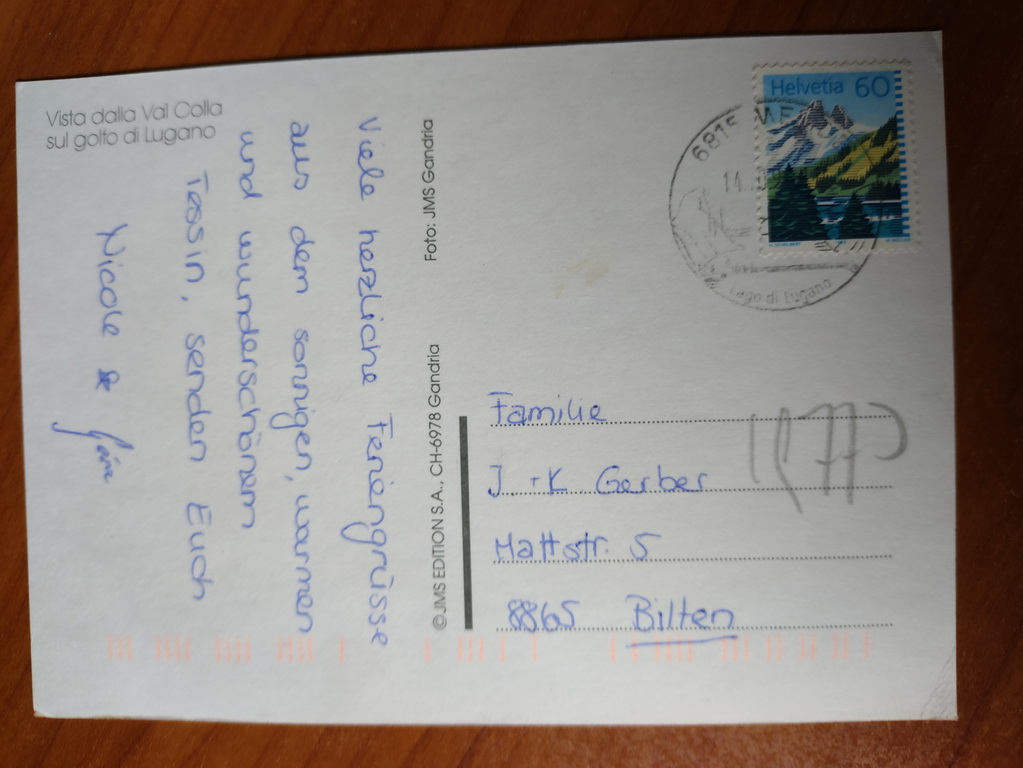 Vista dalla Val Colla
sul golfo di Lugano
Viele herzliche Feriengrüsse
aus dem sonnigen, warmen
und wunderschönen
Tessin, senden Euch
Nicole &
Foto: JMS Gandria
©JMS EDITION S.A., CH-6978 Gandria
Helvetia 60
6815
14.
Lago di Lugano
Familie
J. + K. Gerber
Mattstr. 5
8865 Bilten